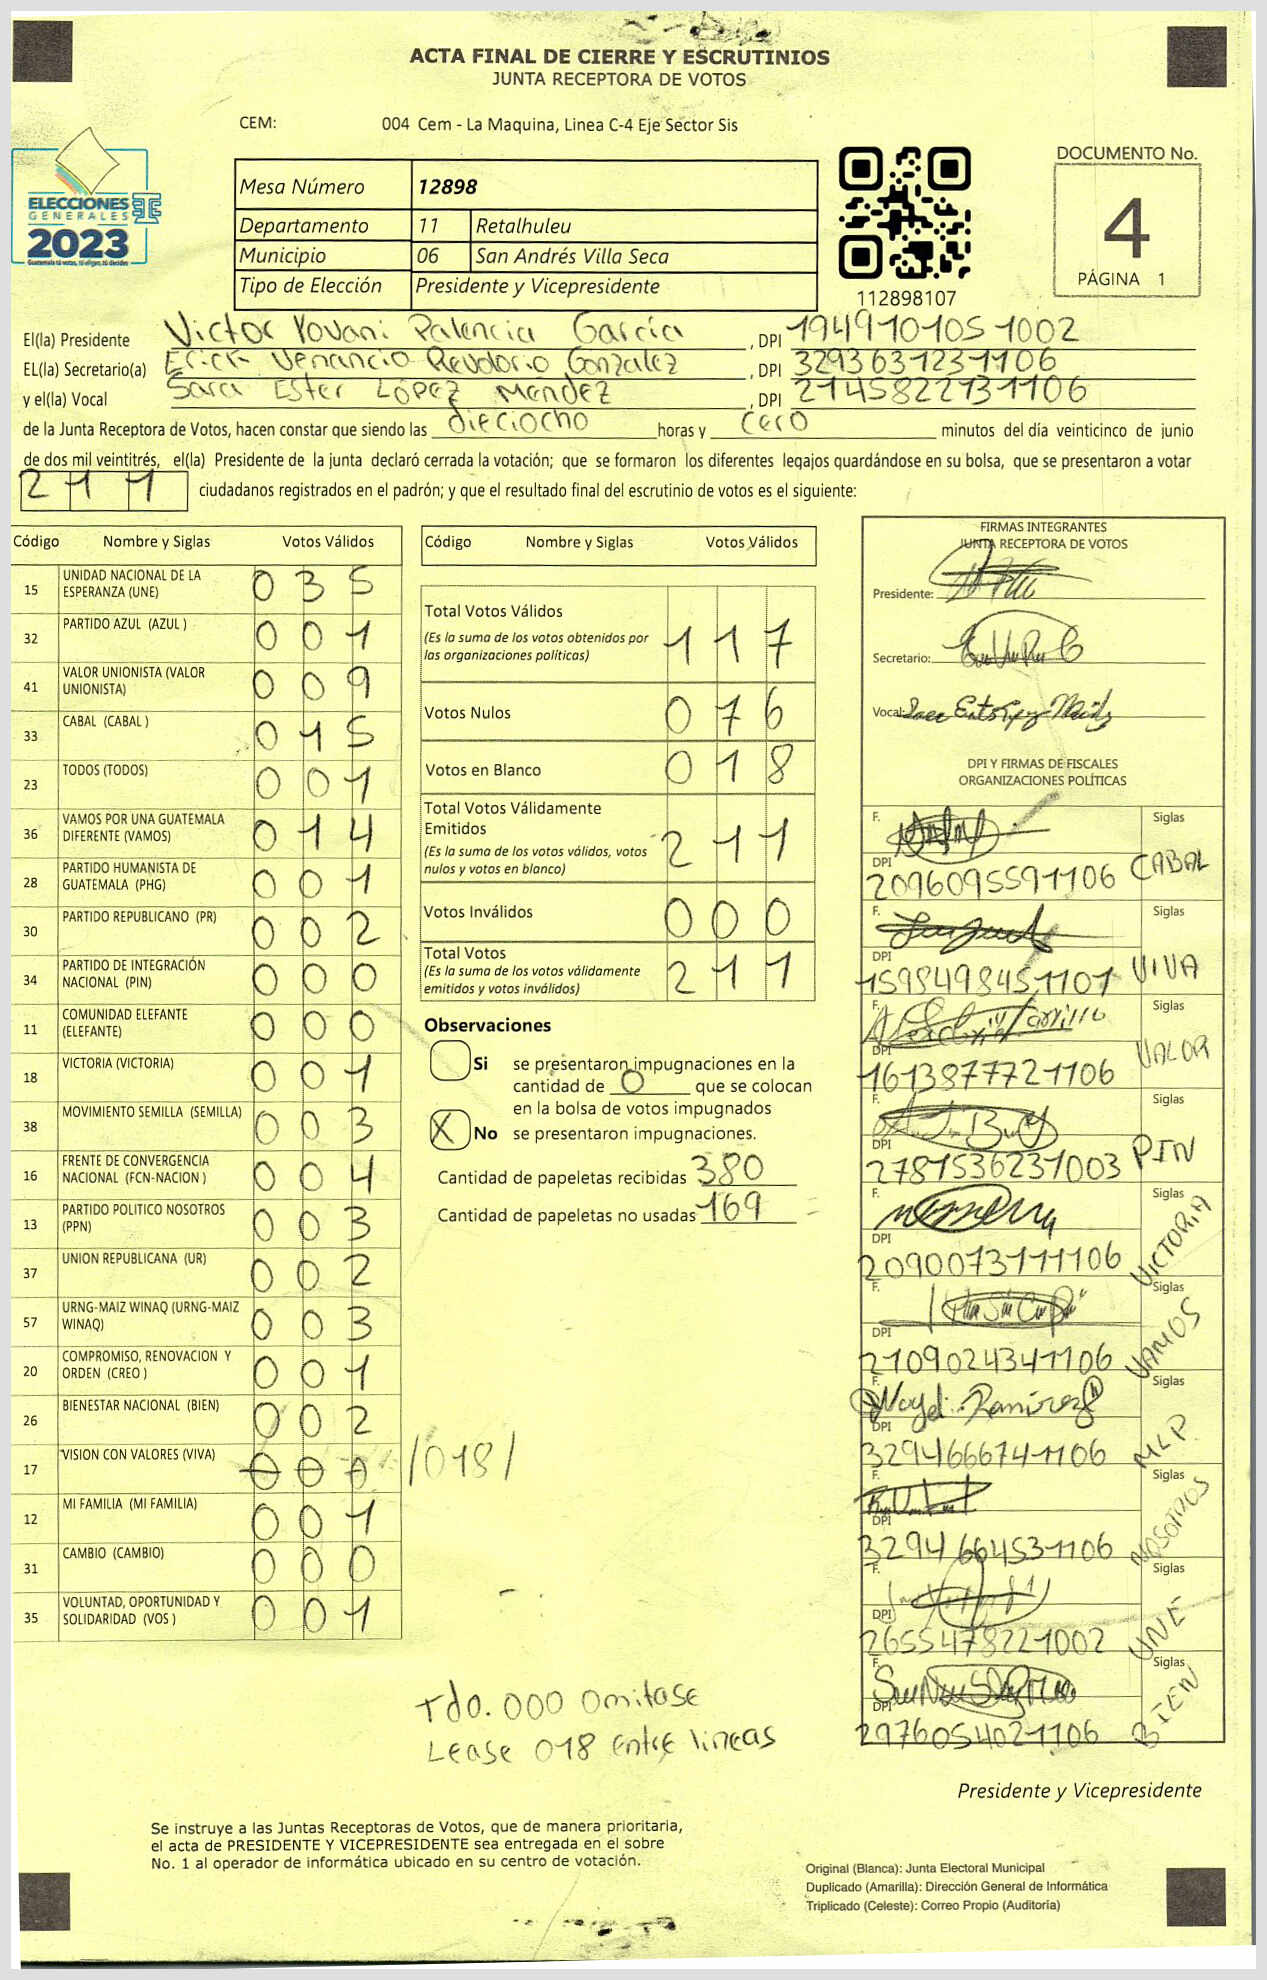 ACTA FINAL DE CIERRE Y ESCRUTINIOS
JUNTA RECEPTORA DE VOTOS
CEM: 004 Cem - La Maquina, Linea C-4 Eje Sector Sis
ELECCIONES
GENERALES
2023
Guatemala tú votas, tú eliges, tú decides
Mesa Número 12898
Departamento 11 Retalhuleu
Municipio 06 San Andrés Villa Seca
Tipo de Elección Presidente y Vicepresidente
112898107
DOCUMENTO No.
4
PÁGINA 1
El(la) Presidente Victor Yovani Palencia García , DPI 1949101051002
EL(la) Secretario(a) Erick Venancio Revolorio Gonzalez , DPI 3293631231106
y el(la) Vocal Sara Ester López Mendez , DPI 2145822131106
de la Junta Receptora de Votos, hacen constar que siendo las dieciocho horas y cero minutos del día veinticinco de junio
de dos mil veintitrés, el(la) Presidente de la junta declaró cerrada la votación; que se formaron los diferentes legajos quardándose en su bolsa, que se presentaron a votar
211 ciudadanos registrados en el padrón; y que el resultado final del escrutinio de votos es el siguiente:
Código Nombre y Siglas Votos Válidos
15 UNIDAD NACIONAL DE LA
ESPERANZA (UNE) 035
32 PARTIDO AZUL (AZUL ) 001
41 VALOR UNIONISTA (VALOR
UNIONISTA) 009
33 CABAL (CABAL ) 015
23 TODOS (TODOS) 001
36 VAMOS POR UNA GUATEMALA
DIFERENTE (VAMOS) 014
28 PARTIDO HUMANISTA DE
GUATEMALA (PHG) 001
30 PARTIDO REPUBLICANO (PR) 002
34 PARTIDO DE INTEGRACIÓN
NACIONAL (PIN) 000
11 COMUNIDAD ELEFANTE
(ELEFANTE) 000
18 VICTORIA (VICTORIA) 001
38 MOVIMIENTO SEMILLA (SEMILLA) 003
16 FRENTE DE CONVERGENCIA
NACIONAL (FCN-NACION ) 004
13 PARTIDO POLITICO NOSOTROS
(PPN) 003
37 UNION REPUBLICANA (UR) 002
57 URNG-MAIZ WINAQ (URNG-MAIZ
WINAQ) 003
20 COMPROMISO, RENOVACION Y
ORDEN (CREO ) 001
26 BIENESTAR NACIONAL (BIEN) 002
17 VISION CON VALORES (VIVA) 000 /018/
12 MI FAMILIA (MI FAMILIA) 001
31 CAMBIO (CAMBIO) 000
35 VOLUNTAD, OPORTUNIDAD Y
SOLIDARIDAD (VOS ) 001
Código Nombre y Siglas Votos Válidos
Total Votos Válidos 117
(Es la suma de los votos obtenidos por
las organizaciones políticas)
Votos Nulos 076
Votos en Blanco 018
Total Votos Válidamente
Emitidos 211
(Es la suma de los votos válidos, votos
nulos y votos en blanco)
Votos Inválidos 000
Total Votos 211
(Es la suma de los votos válidamente
emitidos y votos inválidos)
Observaciones
Si se presentaron impugnaciones en la
cantidad de 0 que se colocan
en la bolsa de votos impugnados
X No se presentaron impugnaciones.
Cantidad de papeletas recibidas 380
Cantidad de papeletas no usadas 169
Tdo. 000 Omitase
Lease 018 entre lineas
FIRMAS INTEGRANTES
JUNTA RECEPTORA DE VOTOS
Presidente:
Secretario:
Vocal:
DPI Y FIRMAS DE FISCALES
ORGANIZACIONES POLÍTICAS
F. Siglas
DPI
2096095591106 CABAL
F. Siglas
DPI
1598498451101 VIVA
F. Siglas
DPI
1613877721106 VALOR
F. Siglas
DPI
2781536231003 PIN
F. Siglas
DPI
2090073111106 VICTORIA
F. Siglas
DPI
2109024341106 VAMOS
F. Noydi Ramírez Siglas
DPI
3294666741106 MLP
F. Siglas
DPI
3294664531106 NOSOTROS
F. Siglas
DPI
2655478221002 UNE
F. Siglas
DPI
2976054021106 BIEN
Presidente y Vicepresidente
Se instruye a las Juntas Receptoras de Votos, que de manera prioritaria,
el acta de PRESIDENTE Y VICEPRESIDENTE sea entregada en el sobre
No. 1 al operador de informática ubicado en su centro de votación.
Original (Blanca): Junta Electoral Municipal
Duplicado (Amarilla): Dirección General de Informática
Triplicado (Celeste): Correo Propio (Auditoría)